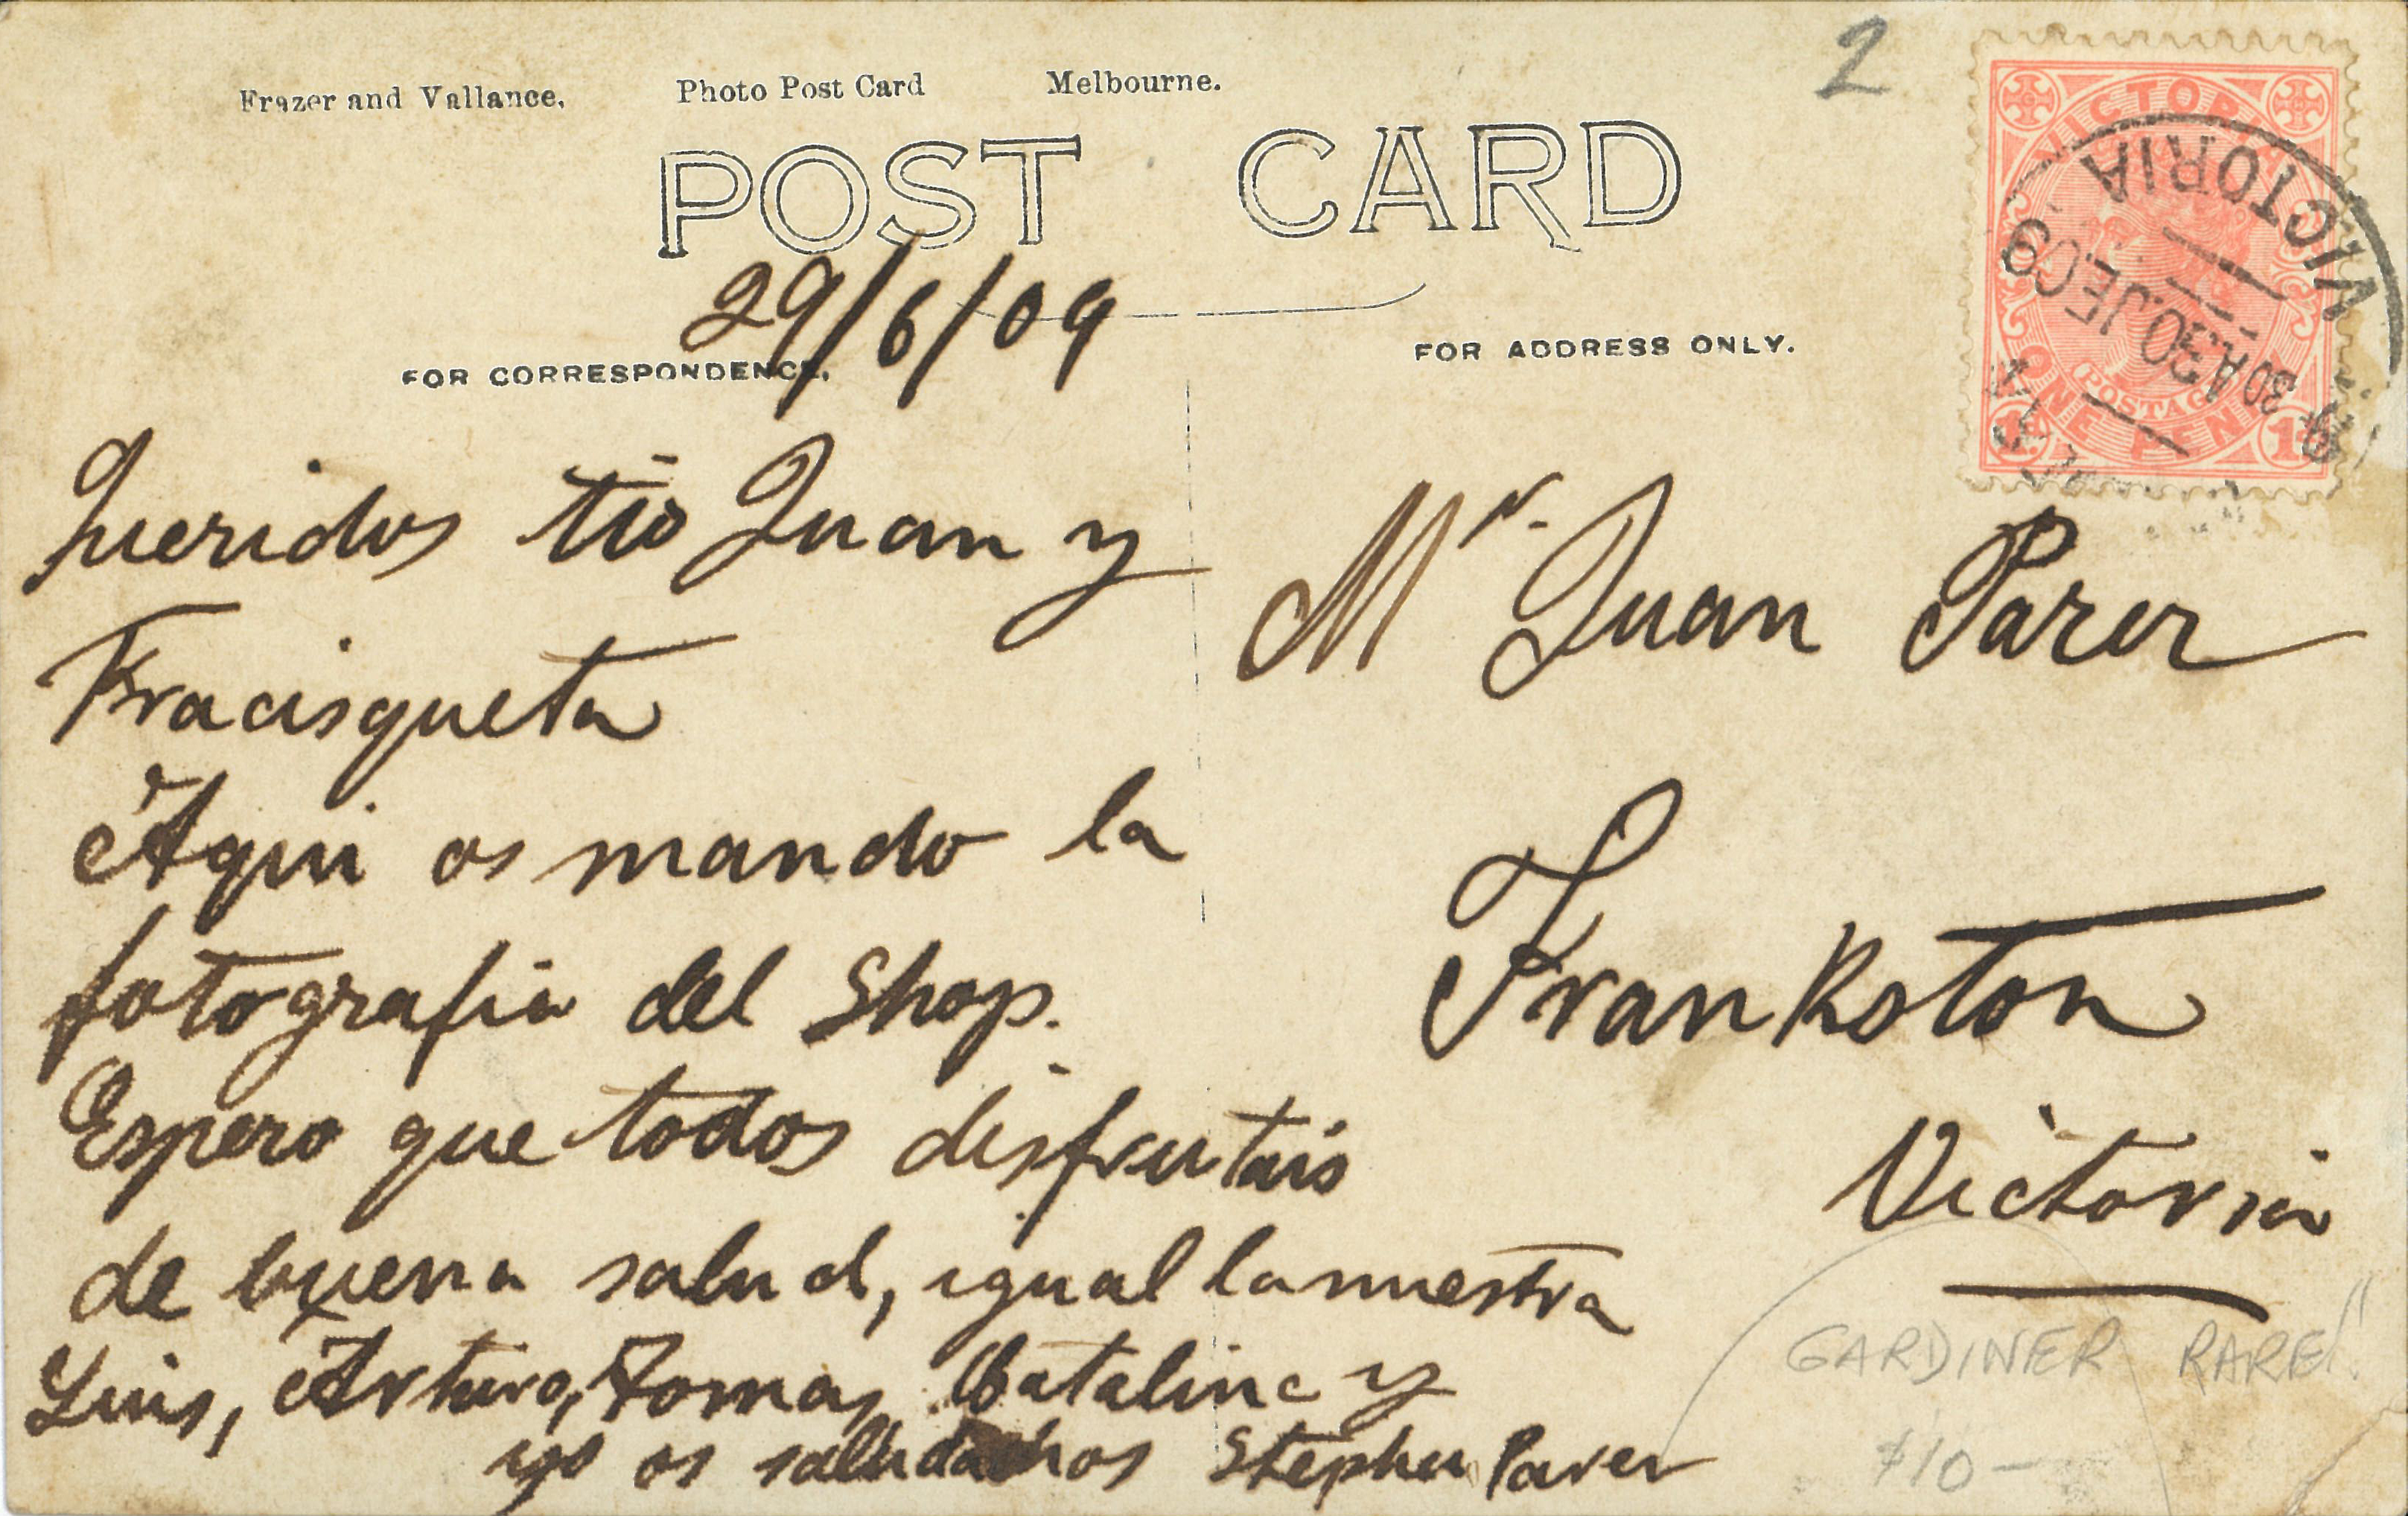 Frazer and Vallance. Photo Post Card Melbourne.
2
POST CARD
29/6/09
FOR CORRESPONDENCE.
FOR ADDRESS ONLY.
VICTORIA
POSTAGE
ONE PENNY
VICTORIA
30 A 30.JE.09
Queridos tio Juan y
Fracisqueta
Aqui os mando la
fotografia del Shop.
Espero que todos disfrutais
de buena salud, igual la nuestra
Luis, Arturo, Tomas, Catalina y
yo os saludamos Stephen Parer
Mr. Juan Parer
Frankston
Victoria
GARDINER RARE!!
$10 —